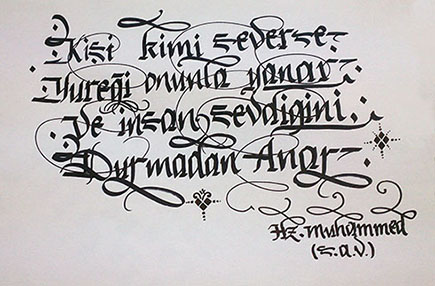 Kişi kimi severse
Yüreği onunla yanar.
Ve insan sevdiğini.
Durmadan Anar.
Hz. Muhammed
(s.a.v.)